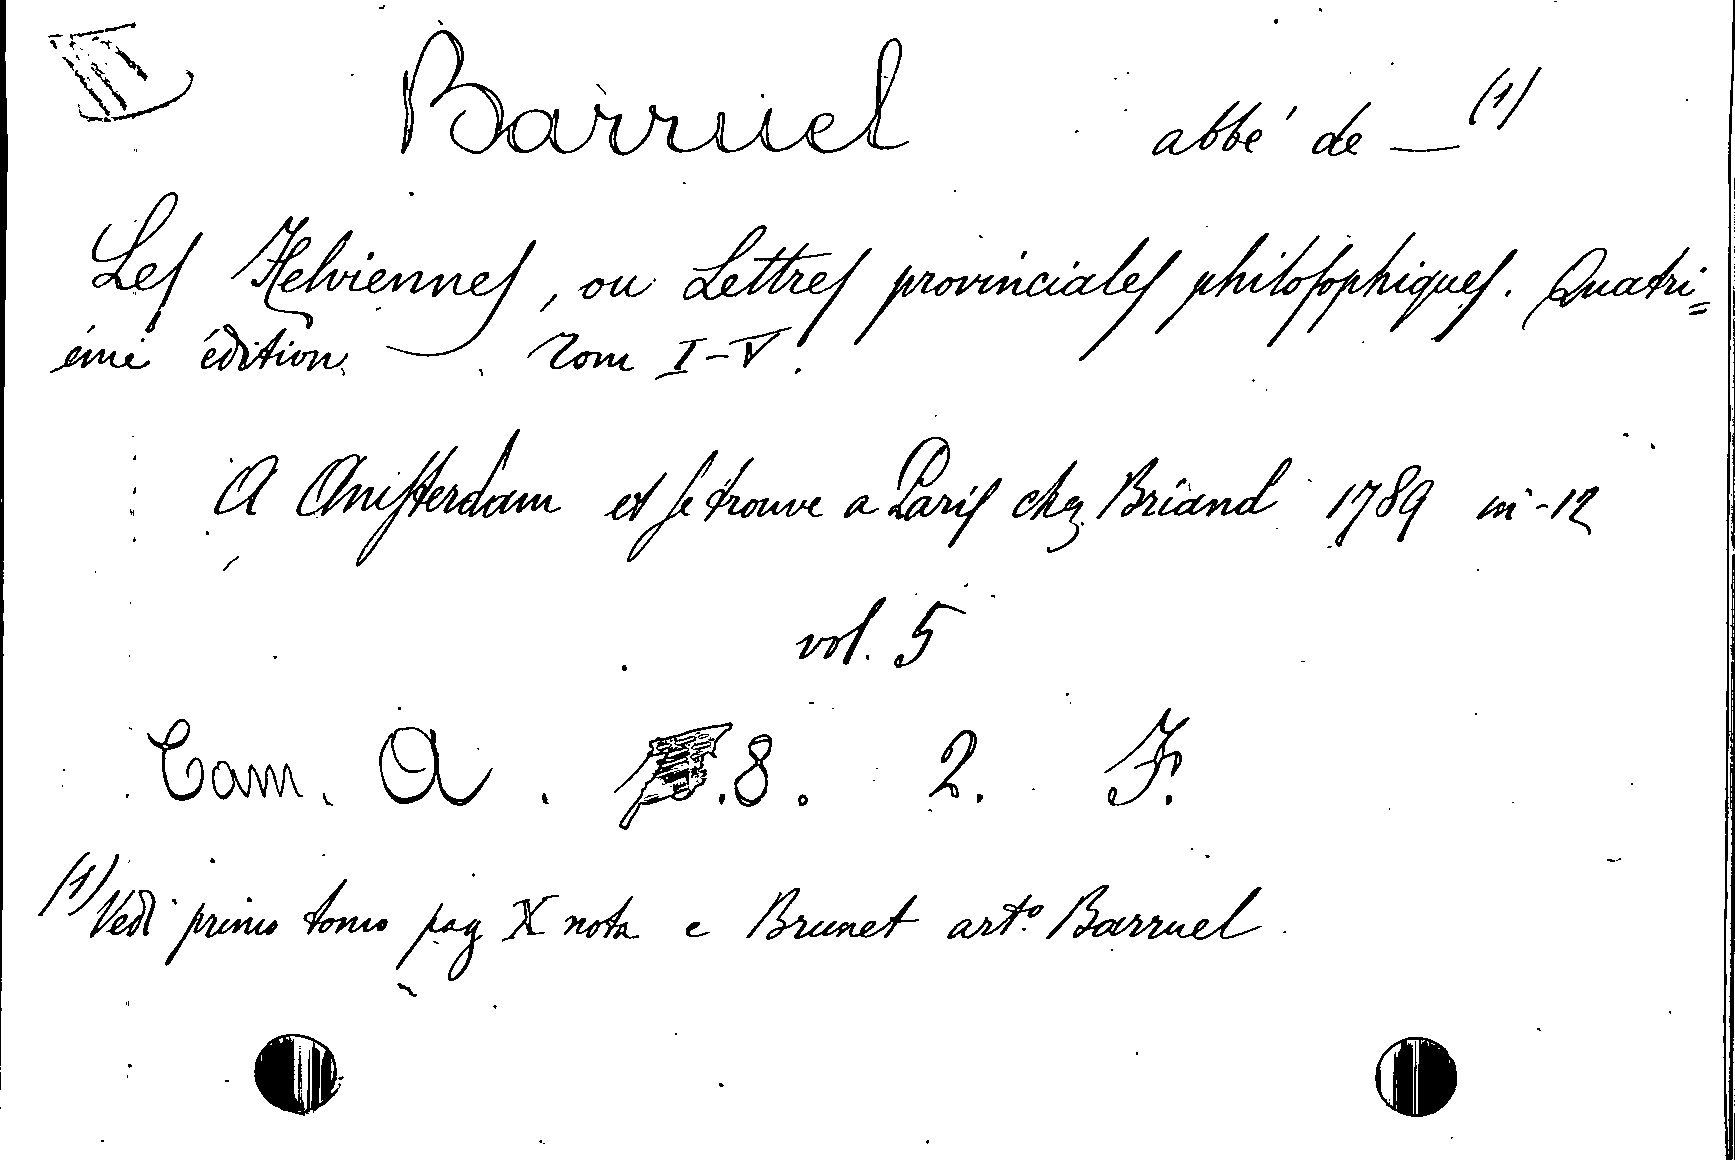 Barruel abbé de — (1)
Les Helviennes, ou Lettres provinciales philosophiques. Quatri=
éme édition — Tom I-V.
A Amsterdam et se trouve a Paris chez Briand 1789 in-12
vol. 5
Cam. A. 8. 2. F.
(1) Vedi primo tomo pag X nota e Brunet arto. Barruel